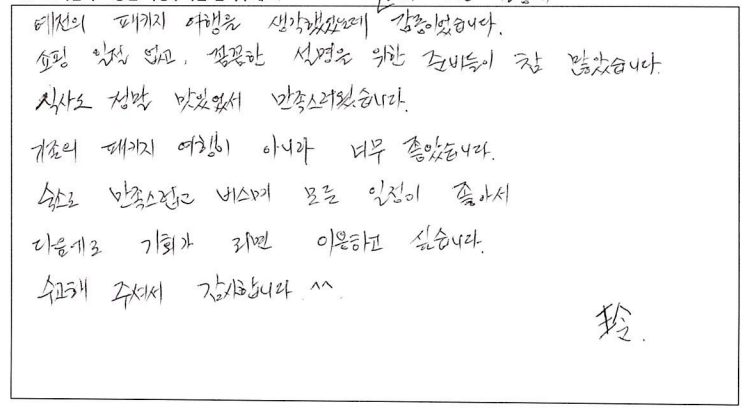 예전의 패키지 여행을 생각했었는데 감동이었습니다.
쇼핑 일절 없고, 꼼꼼한 설명을 위한 준비들이 참 많았습니다.
식사도 정말 맛있었서 만족스러웠습니다.
기존의 패키지 여행이 아니라 너무 좋았습니다.
숙소도 만족스럽고 버스며 모든 일정이 좋아서
다음에도 기회가 되면 이용하고 싶습니다.
수고해 주셔서 감사합니다 ^^